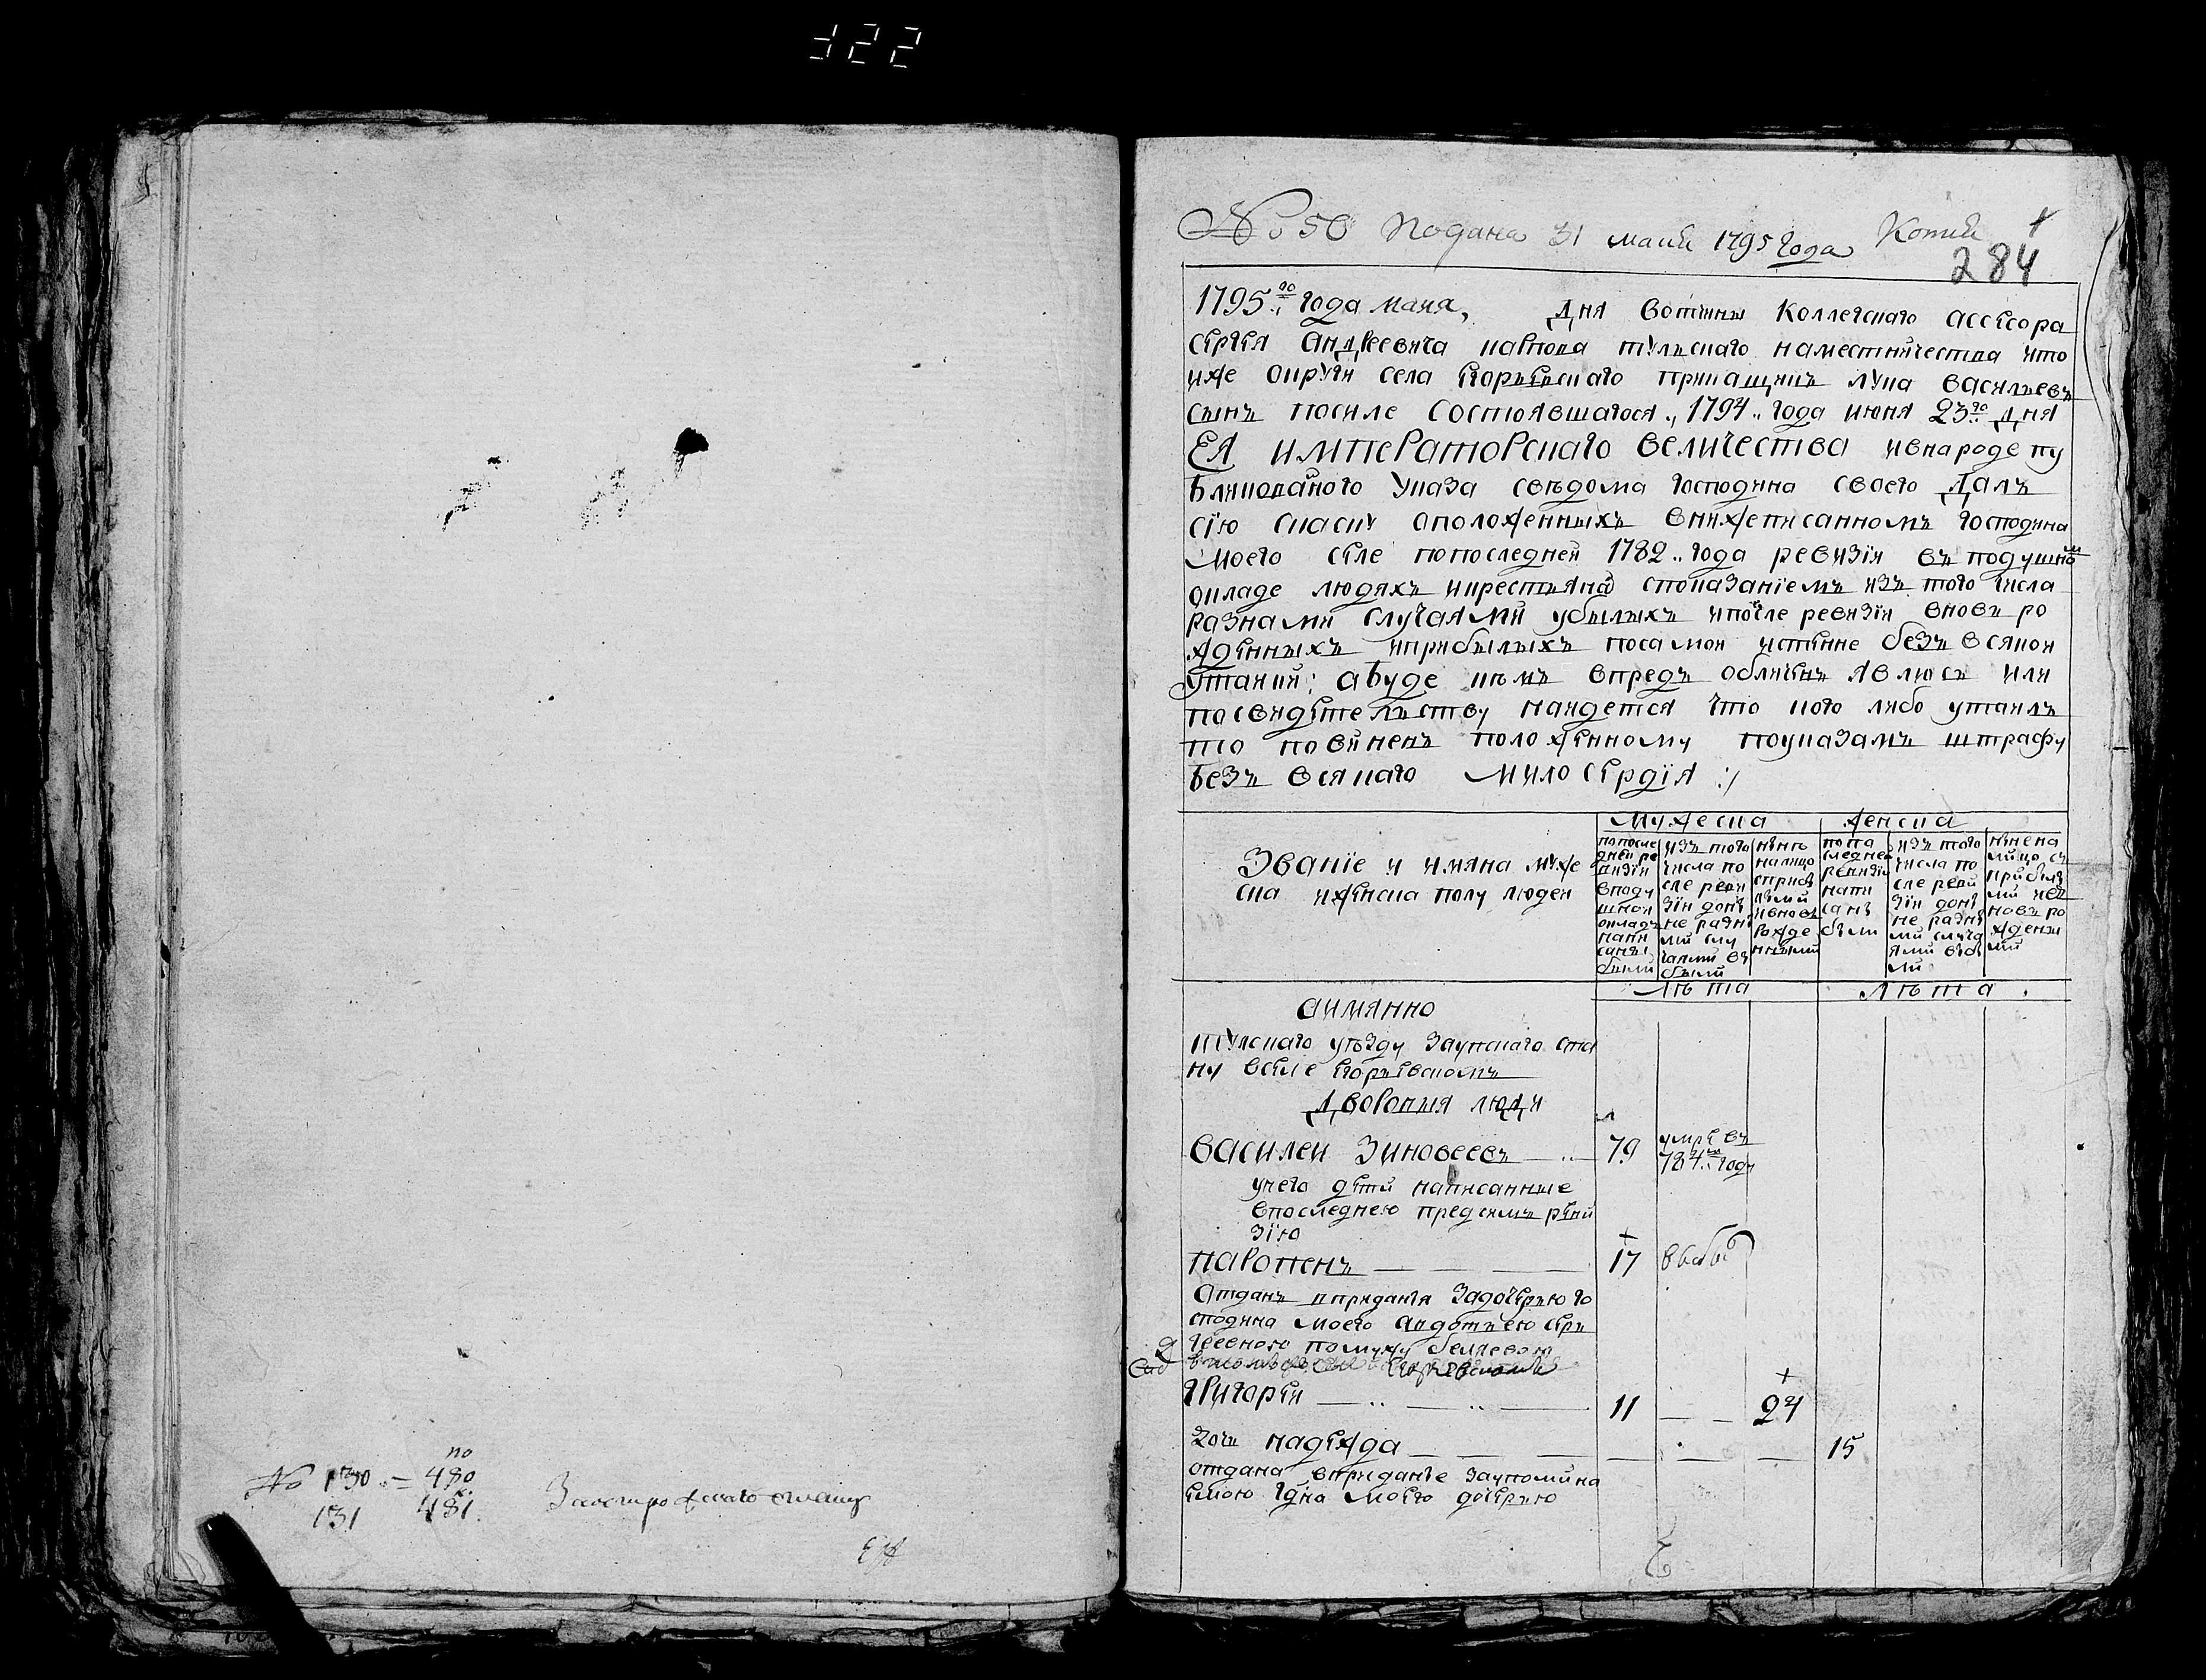 322
№ 130 — по 480.
131 481.
№ 50 Подана 31 маия 1795 года Копия
284
1795го года маия, дня вотчины Коллежскаго ассесора
сергея андреевича тульскаго наместничества что
иже округи села Егорьевскаго прикащикъ лука васильевъ
сынъ посиле состоявшагося 1794 года июня 23го дня
ЕЯ императорскаго величества ивнароде пу
бликованого указа сведома господина своего далъ
сїю скаску оположенныхъ внижеписанномъ господина
моего селе попоследней 1782 года ревизїи въ подушно
окладе людяхъ икрестьянаъ споказанїемъ изъ того числа
разнами случаями убылыхъ ипосле ревизїи вновь ро
жденныхъ иприбылыхъ посамои истинне безъ всякои
утаики; абуде кемъ впредь обличенъ явлюсь или
посвидетельству наидется что кого либо утаилъ
то повиненъ положенному поуказамъ штрафу
безъ всякаго милосердїя :/
Званїе и имяна муже
ска иженска полу людеи
Мужеска женска
попосле дней ре визїи вподу шнои окладъ напи саны были
изъ того числа по сле реви зїи доны не разны ми слу чаями вы были
ныне налицо сприбы лыми ивновь рожде нными
попо следнеи ревизїи напи саны были
изъ того числа по сле реви зїи доны не разны ми случа ями выбы ли
ныне на лицо съ прибылы ми иев новь ро жденны ми
Лѣта Лѣта
аимянно
тулскаго уѣзду заупскаго ста
ну вселе Егорьевскомъ
дворовыя люди
василеи Зиновеевъ — 79 умре въ 784м году
унего дети написанные
впоследнею предсимъ реви
зїю
парфенъ — 17 выбы
Отданъ вприданыя задочерью го
сподина моего авдотьею сер
геевною помужу беляевою
григореи — 11 — 24
дочь надежда — 15
отдана вприданые заупомина
емою гдна моего дочерью